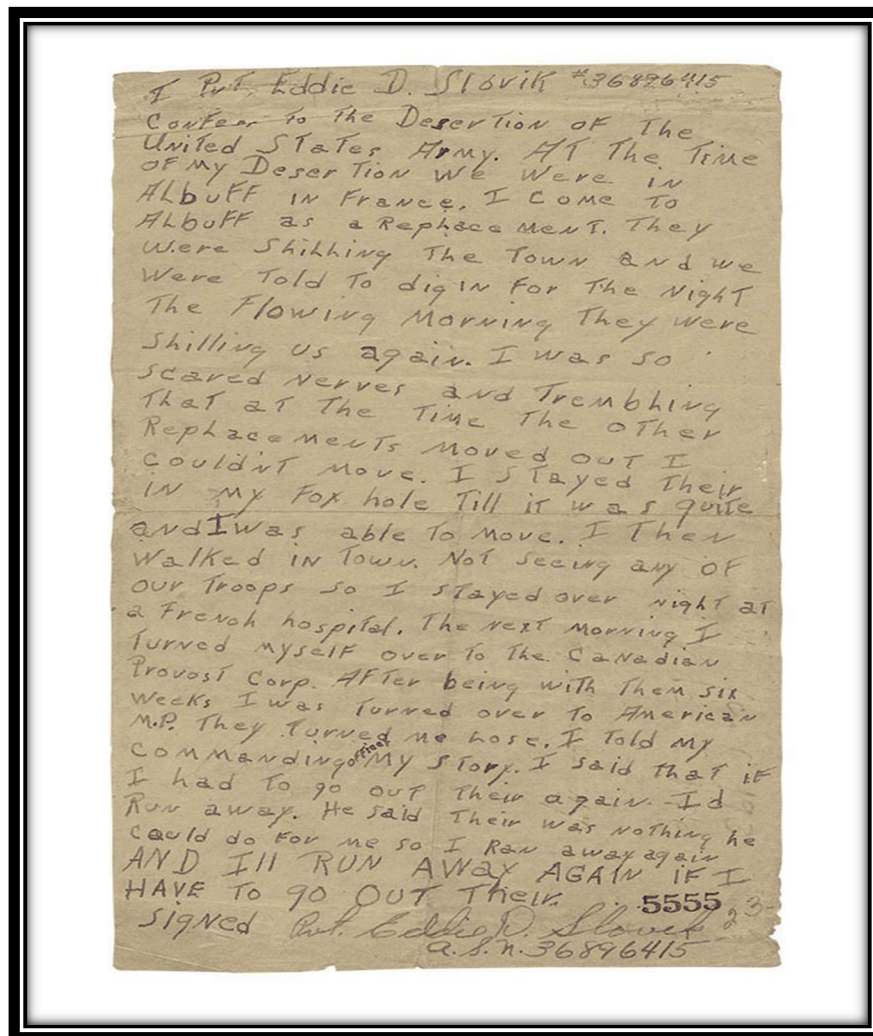 I Pvt. Eddie D. Slovik #36896415
Confess To The Desertion of The
United States Army. At The Time
of my Desertion we were in
Albuff in France. I come to
Albuff as a Replacement. They
were Shilling The Town and we
were Told To dig in for The Night
The Flowing Morning They were
Shilling us again. I was so
scared nerves and Trembling
That at The Time The other
Replacements Moved out I
couldnt move. I stayed Their
in my Fox hole Till it was quite
and I was able To move. I Then
walked in Town. Not seeing any of
our Troops so I stayed over night at
a French hospital. The next Morning I
Turned myself over To The Canadian
Provost Corp. After being with Them six
weeks I was Turned over To American
M.P. They Turned me lose. I Told my
commanding officer my story. I said that if
I had To go out Their again Id
Run away. He said Their was nothing he
could do for me so I Ran away again
AND ILL RUN AWAY AGAIN IF I
HAVE To go OUT Their.
5555
signed Pvt. Eddie D. Slovik
23-
a.s.n. 36896415